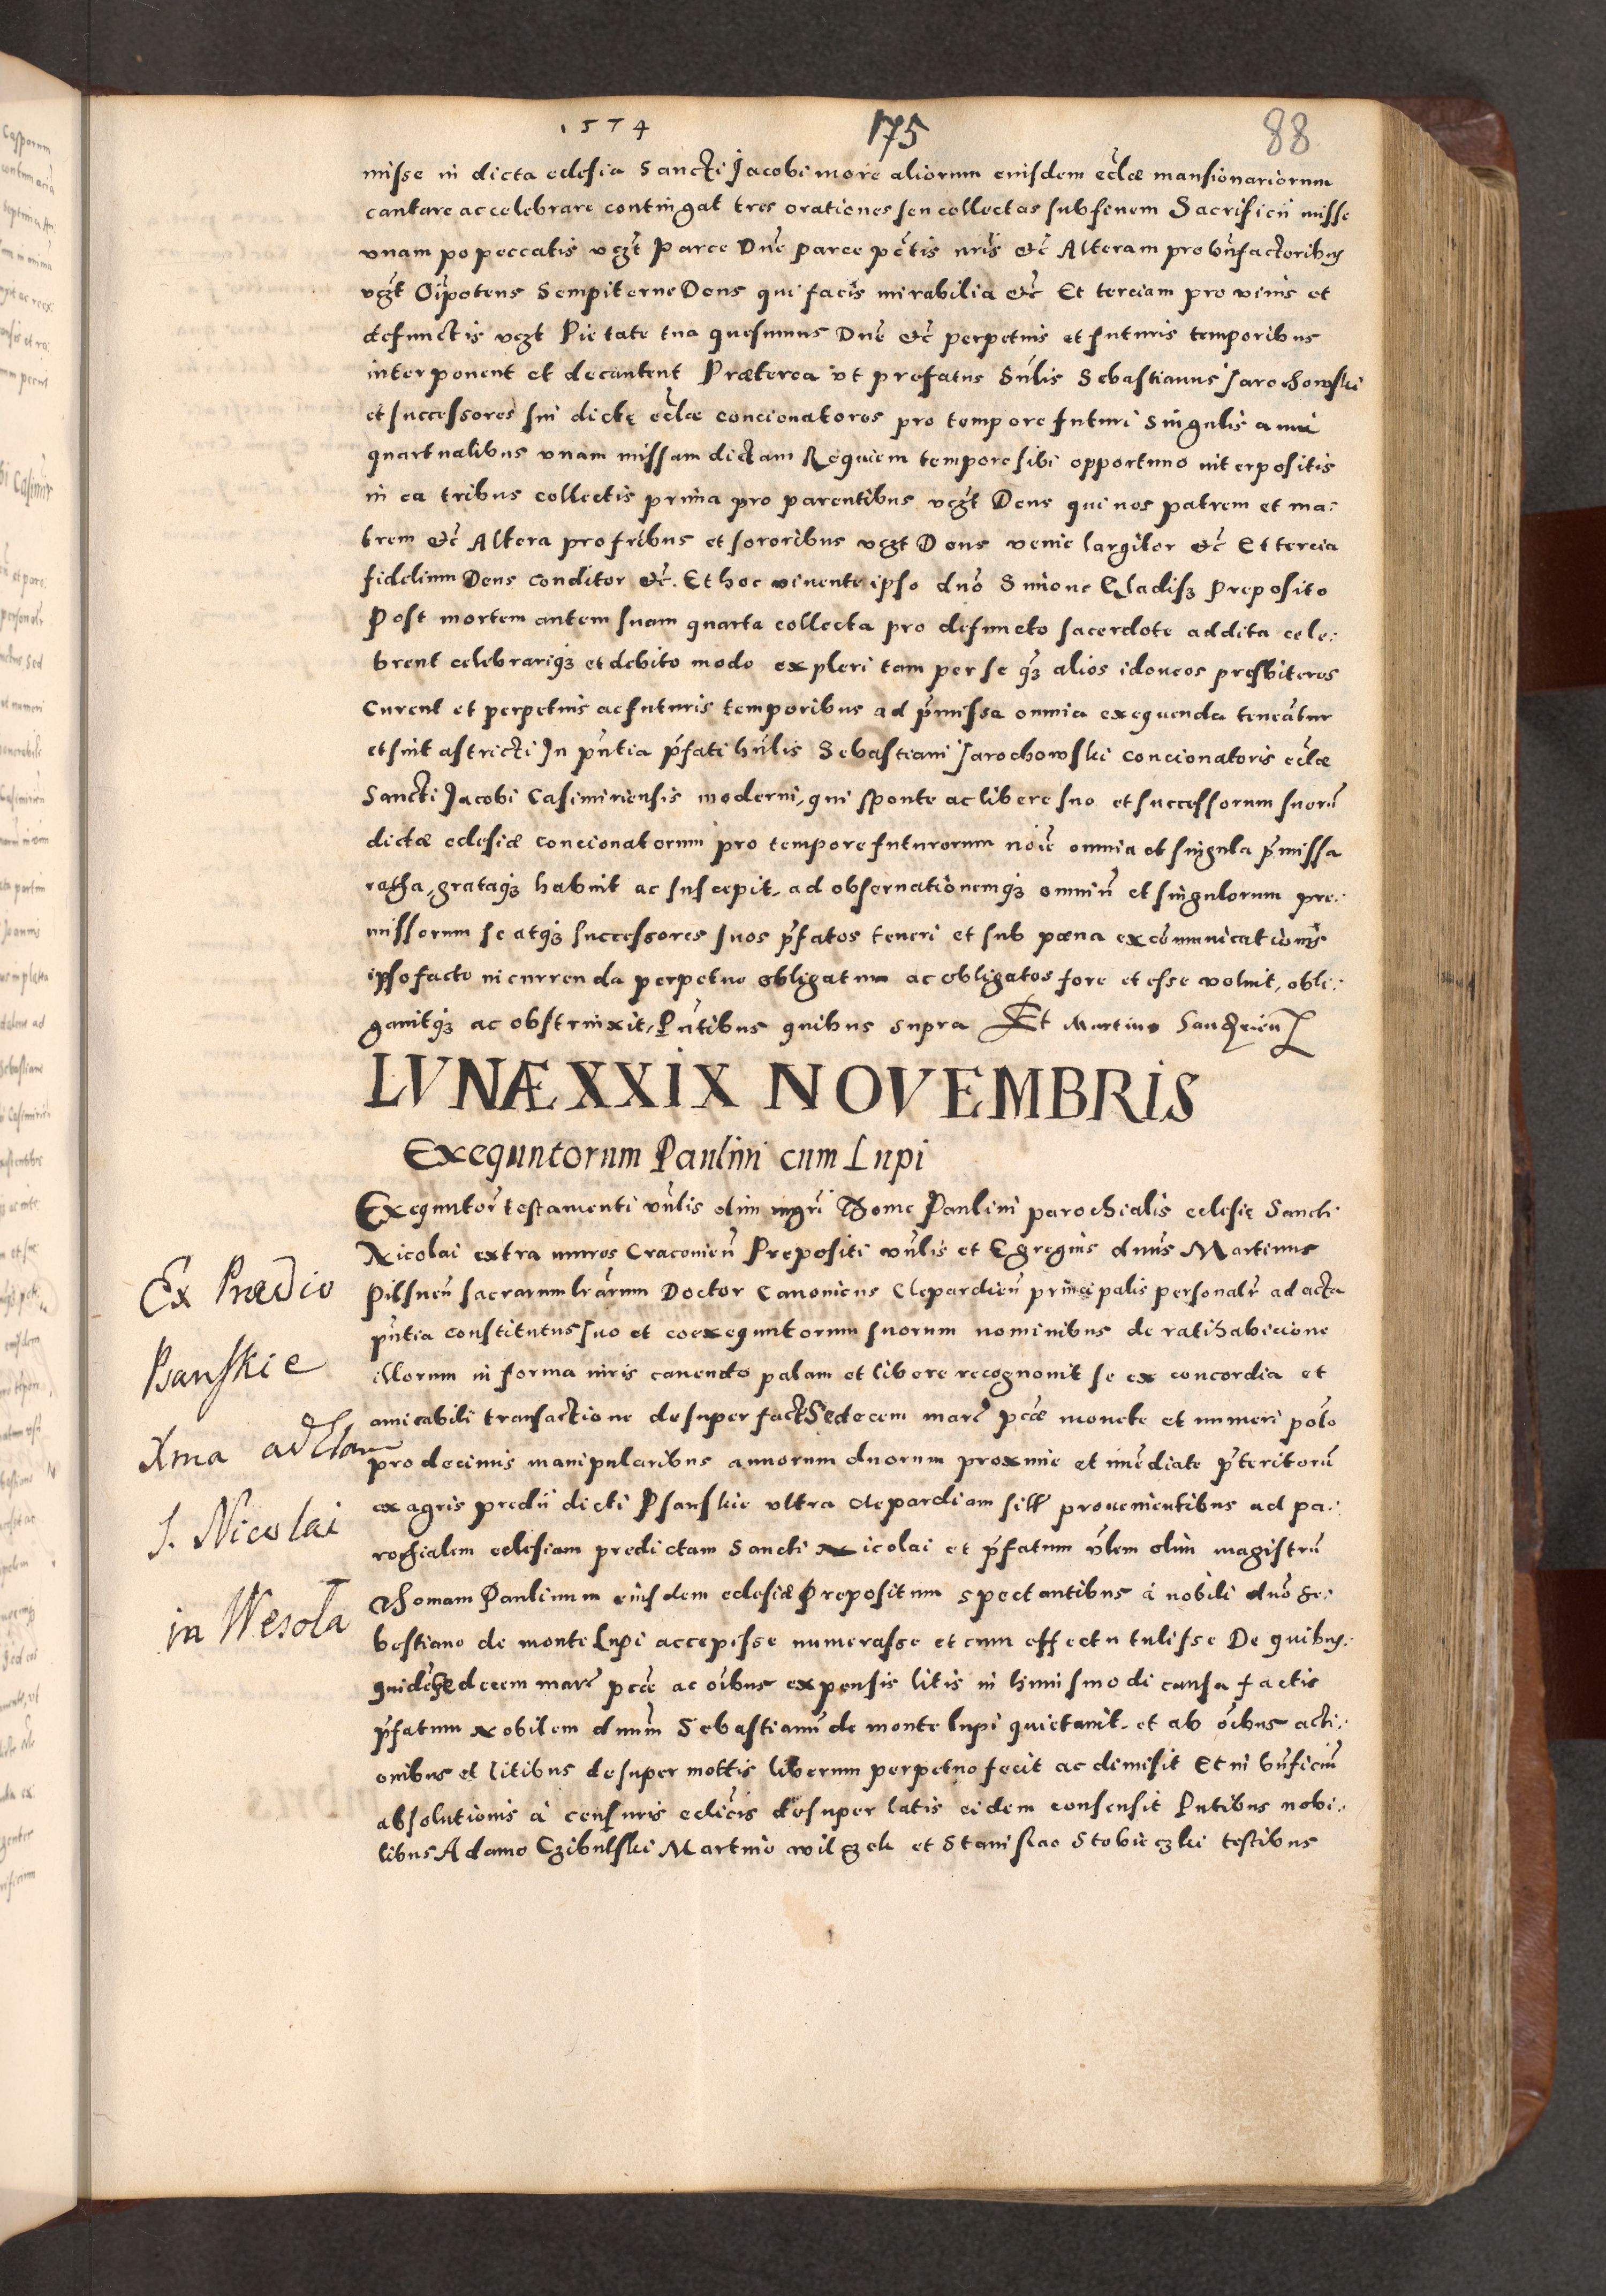 1574
175
88
misse in dicta eclesia Sancti Jacobi more aliorum eiusdem eclæ mansionariorum
cantare ac celebrare contingat tres orationes seu collectas sub finem Sacrificii misse
vnam po peccatis vczt Parce Dne parce pctis nris etc Alteram pro bnfactoribus
vczt Oipotens Sempiterne Deus qui facis mirabilia etc Et terciam pro viuis et
defunctis vczt Pietate tua quesumus Dne etc perpetuis et futuris temporibus
interponent et decantent Præterea vt prefatus Sebastianus Jarochowski
et successores sui dictę eclæ concionatores pro tempore futuri Singulis anni
quartualibus vnam missam dictam Requiem tempore sibi opportuno interpositis
in ea tribus collectis prima pro parentibus vczt Deus qui nos patrem et ma:
trem etc Altera pro fribus et sororibus vczt Deus venie largitor etc Et tercia
fidelium Deus conditor etc. Et hoc viuente ipso dno Simone Preposito
Post mortem autem suam quarta collecta pro defuncto sacerdote addita cele:
brent celebrariqз et debito modo expleri tam per se qз alios idoneos presbiteros
Curent et perpetuis ac futuris temporibus ad pmissa omnia exequenda teneantur
et sint astricti In pntia pfati hnlis Sebastiani Jarochowski concionatoris eclæ
Sancti Jacobi Casimiriensis moderni, qui sponte ac libere suo et successorum suoru
dictæ eclesiæ concionatorum pro tempore futurorum noie omnia et singula pmissa
ratha, grataqз habuit ac suscepit, ad obseruationemqз omniu et singulorum pre:
missorum se atqз successores suos pfatos teneri et sub pæna excomunicationis
ipso facto incurrenda perpetuo obligatum ac obligatos fore et esse voluit, obli:
gauitqз ac obstrinxit, Pntibus quibus supra Et Martino
LVNÆ XXIX NOVEMBRIS
Exequutorum Paulini cum Lupi
Exequutor testamenti vnlis olim mgri Thome Paulini parochialis eclesię Sancti
Nicolai extra muros Cracouien Prepositi vnlis et Egregius dnus Martinus
Pilsnen sacrarum lrarum Doctor Canonicus Clepardien principalis personalr ad acta
pntia constitutus suo et coexequutorum suorum nominibus de ratihabicione
illorum in forma iuris cauendo palam et libere recognouit se ex concordia et
amicabili transactione desuper fact Sedecem marc pcæ monete et numeri polo
pro decimis manipularibus annorum duorum proxime et imediate pteritoru
ex agris predii dicti Psanskie vltra Clepardiam sitt prouenientibus ad pa:
rochialem eclesiam predictam Sancti Nicolai et pfatum vlem olim magistru
Thomam Paulinum eiusdem eclesiæ Prepositum spectantibus à nobili dno Se:
bestiano de monte Lupi accepisse numerasse et cum effectu tulisse De quibus:
quidem Sedecem marc pcæ ac oibus expensis litis in huiusmodi causa factis
pfatum Nobilem dnum Sebastianu de monte lupi quietauit, et ab oibus acti:
onibus et litibus desuper mottis liberum perpetuo fecit ac dimisit Et in bnficiu
absolutionis à censuris eclicis desuper latis eidem consensit Pntibus nobi:
libus Adamo Czibulski Martino wilczek et Stanislao Stobieczki testibus
Ex Prædio
Psanskie
Xma ad Ecclam
S. Nicolai
in Wesoła